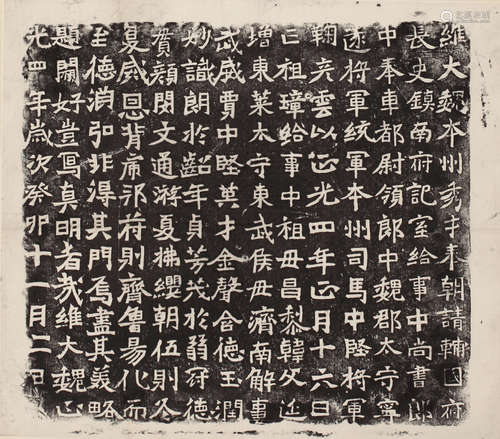 維大魏本州秀才奉朝請輔國府
長史鎮南府記室給事中尚書郎
中奉車都尉領郎中魏郡太守寧
遠將軍統軍本州司馬中堅將軍
鞠彥雲以正光四年正月十六日
亡祖璋給事中祖母昌黎韓父延
增東萊太守東武侯母濟南解事
武威賈中堅英才金聲合德玉潤
妙識朗於齠年貞芳茂於弱冠德
賀顏閔文通游夏拂纓朝伍則令
夏威恩背席邦莅則齊魯易化而
至德消弘非得其門焉盡其義略
題闕好豈寫真明者哉維大魏正
光四年歲次癸卯十一月二日